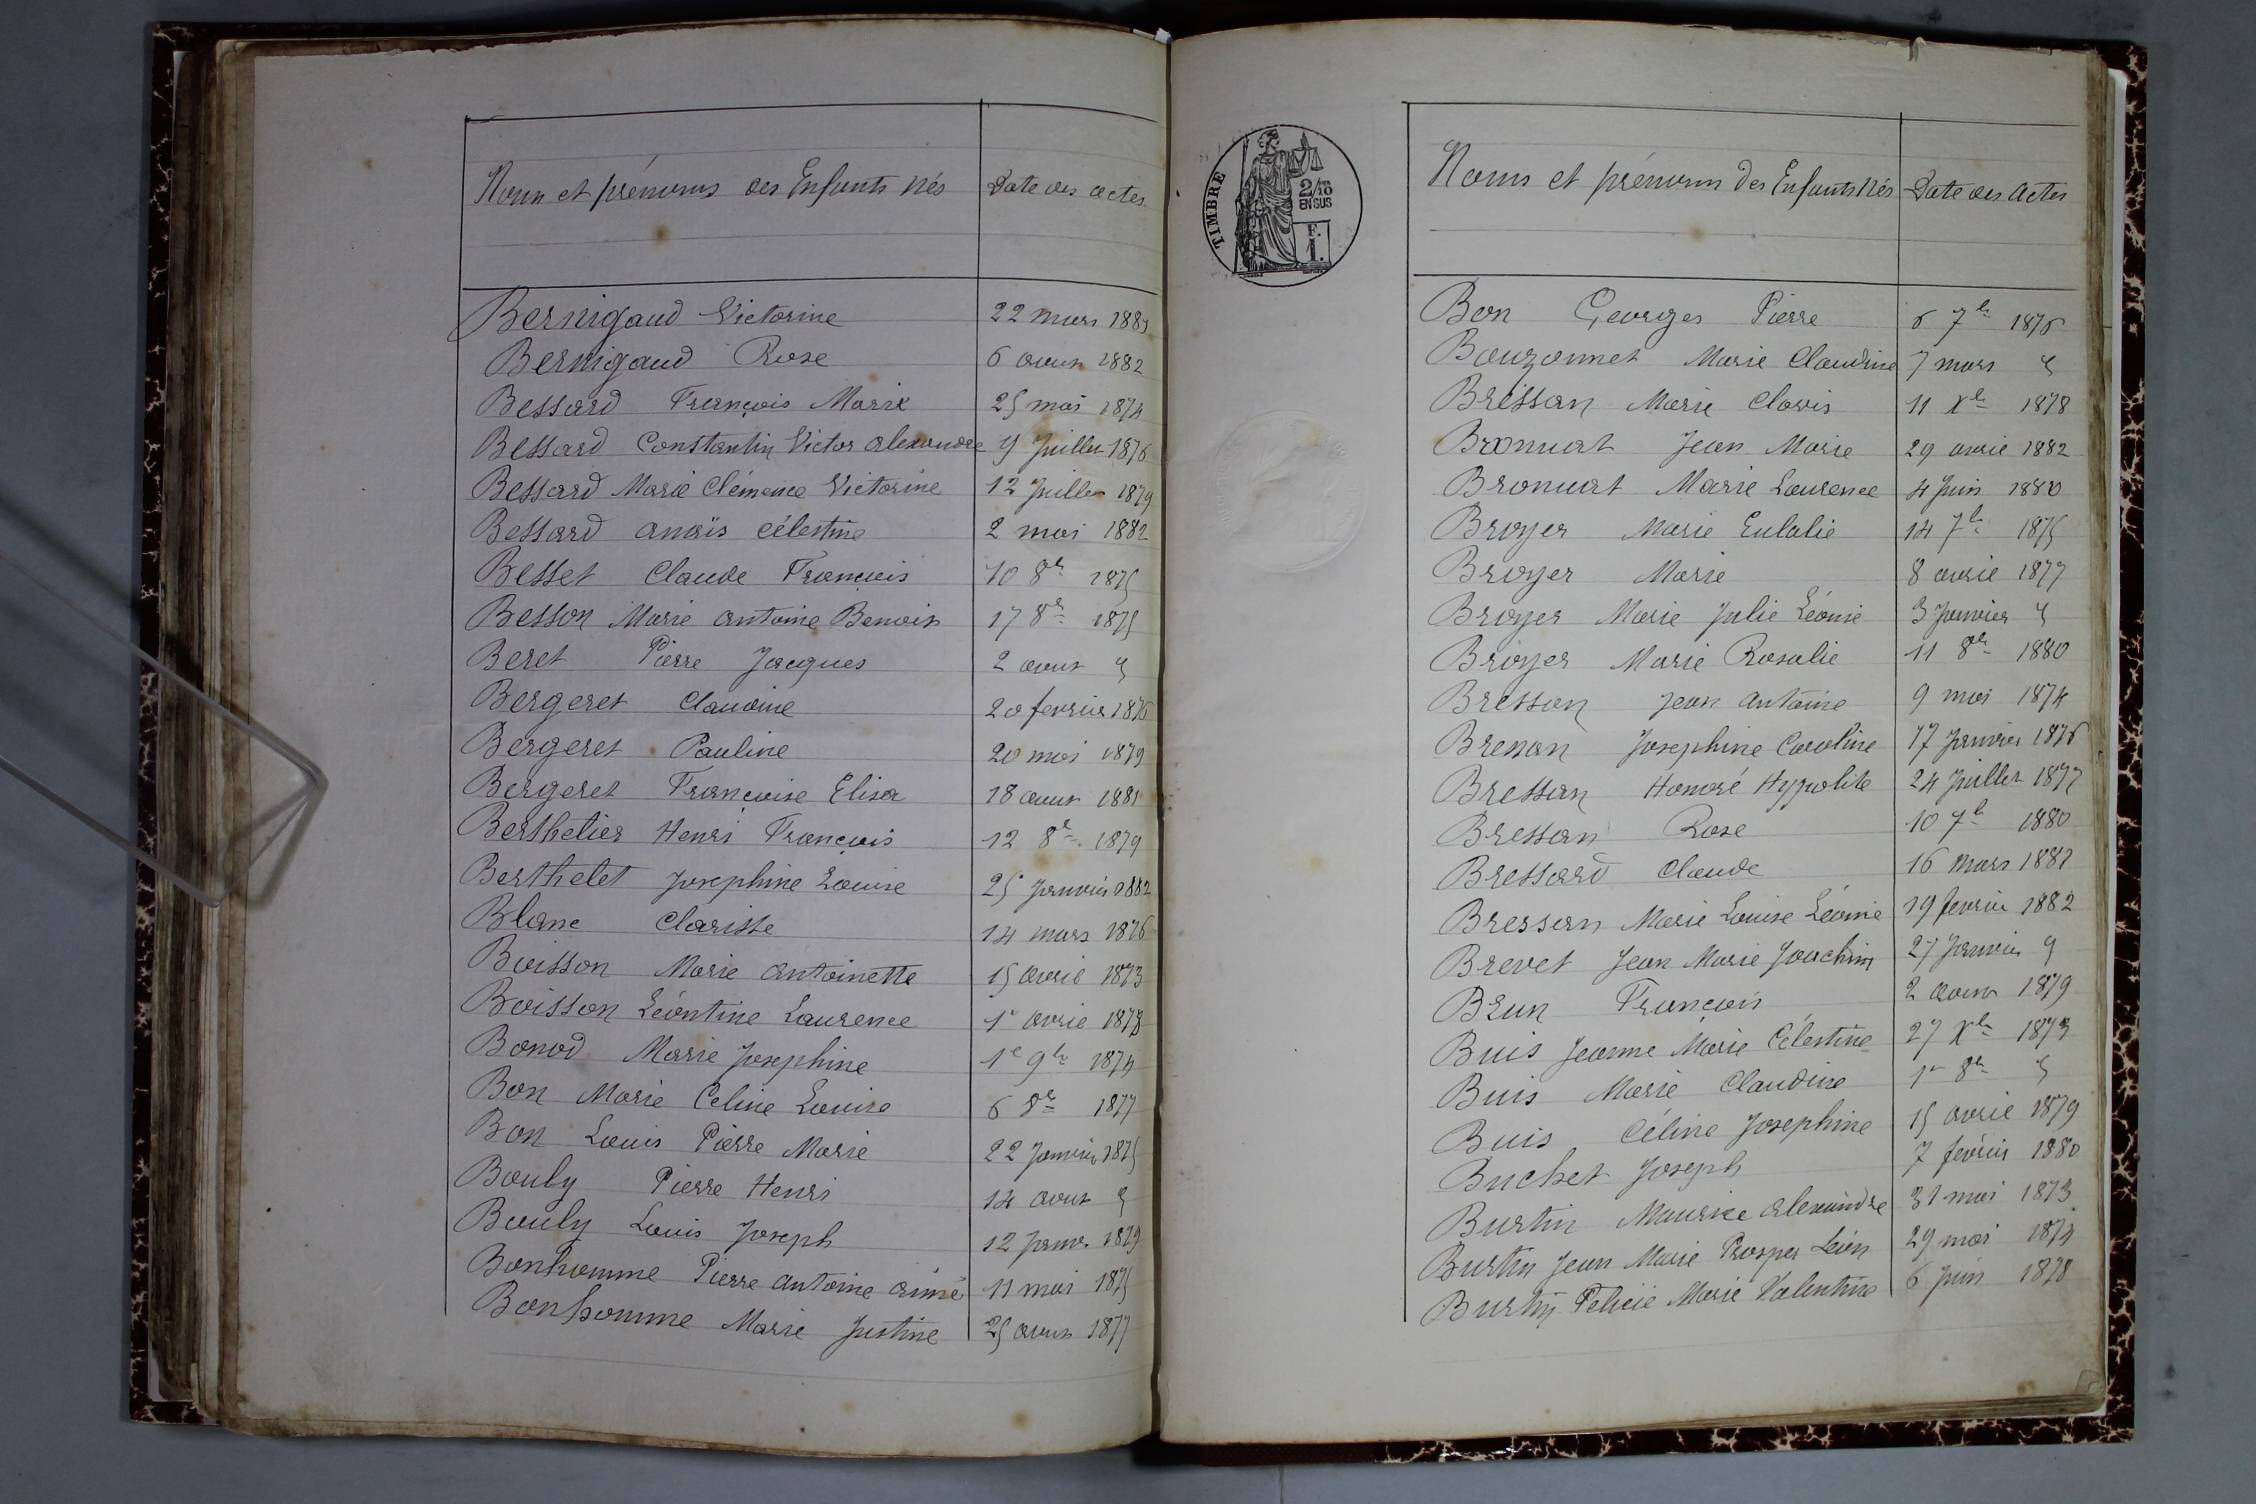 Noms et prénoms des Enfants nés Date des actes
Bernigaud Victorine 22 mars 1881
Bernigaud Rose 6 aout 1882
Bessard François Marie 25 mai 1874
Bessard Constantin Victor alexandre 9 Juillet 1876
Bessard Marie Clémence Victorine 12 Juillet 1879
Bessard anaïs célestine 2 mai 1882
Besset Claude François 10 8re 1875
Besson Marie antoine Benoit 17 8re 1875
Beret Pierre Jacques 2 aout "
Bergeret Claudine 20 fevrier 1876
Bergeret Pauline 20 mai 1879
Bergeret Françoise Elisa 18 aout 1881
Berthelier Henri François 12 8re 1879
Berthelet Josephine Louise 25 Janvier 1882
Blanc Clarisse 14 mars 1876
Boisson Marie antoinette 15 avril 1873
Boisson Léontine Laurence 1r avril 1878
Bonod Marie Josephine 1e 9bre 1874
Bon Marie Celine Louise 6 8re 1877
Bon Louis Pierre Marie 22 Janvier 1875
Bouly Pierre Henri 14 aout "
Bouly Louis Joseph 12 Janvr 1879
Bonhomme Pierre antoine aimé 11 mai 1875
Bonhomme Marie Justine 25 aout 1877
TIMBRE
2/10
EN SUS
F.
1.
Noms et prénoms des Enfants nés Date des actes
Bon Georges Pierre 6 7bre 1876
Bouzonnet Marie Claudine 7 mars "
Bressan Marie Clovis 11 Xbre 1878
Bronnat Jean Marie 29 avril 1882
Bronnat Marie Laurence 4 Juin 1880
Broyer Marie Eulalie 14 7bre 1875
Broyer Marie 8 avril 1877
Broyer Marie Julie Léonie 3 Janvier "
Broyer Marie Rosalie 11 8re 1880
Bressan Jean antoine 9 mai 1874
Bressan Josephine Caroline 17 Janvier 1876
Bressan Honoré Hypolite 24 Juillet 1877
Bressan Rose 10 7bre 1880
Bressard Claude 16 mars 1881
Bressan Marie Louise Léonie 19 fevrier 1882
Brevet Jean Marie Joachim 27 Janvier "
Brun François 2 aout 1879
Buis Jeanne Marie Célestine 27 Xbre 1873
Buis Marie Claudine 1r 8re "
Buis Céline Josephine 15 avril 1879
Buchet Joseph 7 février 1880
Burtin Maurice alexandre 31 mai 1873
Burtin Jean Marie Prosper Léon 29 mai 1874
Burtin Felicie Marie Valentine 6 Juin 1878